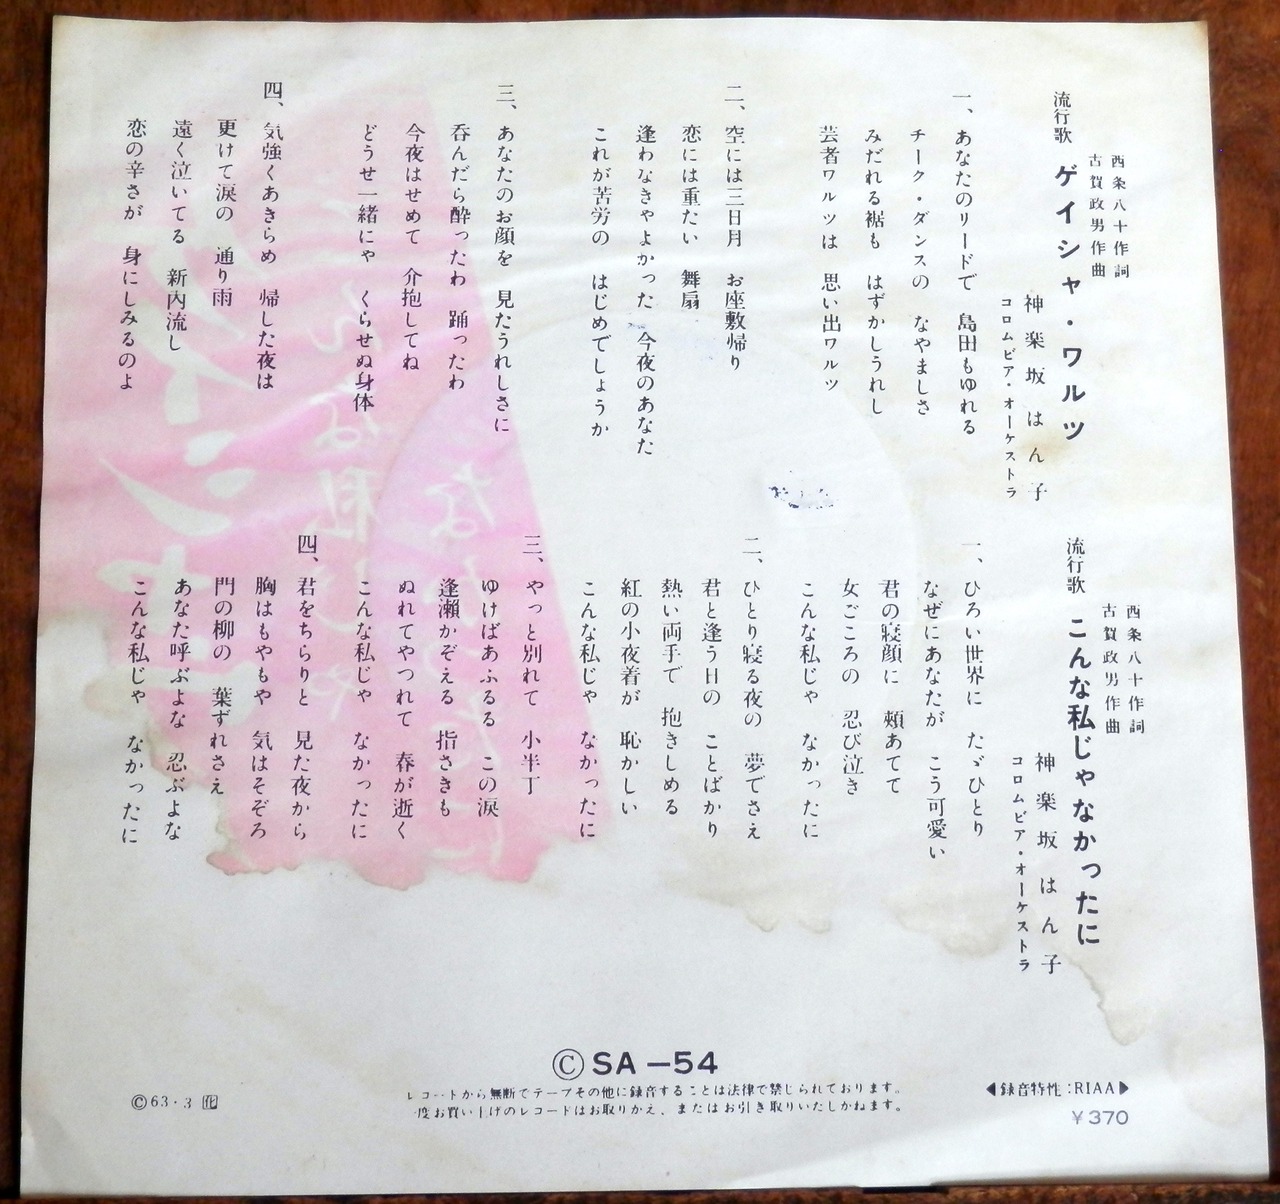 西条八十作詞
古賀政男作曲
流行歌 ゲイシャ・ワルツ
神楽坂はん子
コロムビア・オーケストラ
一、あなたのリードで 島田もゆれる
チーク・ダンスの なやましさ
みだれる裾も はずかしうれし
芸者ワルツは 思い出ワルツ
二、空には三日月 お座敷帰り
恋には重たい 舞扇
逢わなきゃよかった 今夜のあなた
これが苦労の はじめでしょうか
三、あなたのお顔を 見たうれしさに
呑んだら酔ったわ 踊ったわ
今夜はせめて 介抱してね
どうせ一緒にゃ くらせぬ身体
四、気強くあきらめ 帰した夜は
更けて涙の 通り雨
遠く泣いてる 新内流し
恋の辛さが 身にしみるのよ
西条八十作詞
古賀政男作曲
流行歌 こんな私じゃなかったに
神楽坂はん子
コロムビア・オーケストラ
一、ひろい世界に たゞひとり
なぜにあなたが こう可愛い
君の寝顔に 頬あてて
女ごころの 忍び泣き
こんな私じゃ なかったに
二、ひとり寝る夜の 夢でさえ
君と逢う日の ことばかり
熱い両手で 抱きしめる
紅の小夜着が 恥かしい
こんな私じゃ なかったに
三、やっと別れて 小半丁
ゆけばあふるる この涙
逢瀬かぞえる 指さきも
ぬれてやつれて 春が逝く
こんな私じゃ なかったに
四、君をちらりと 見た夜から
胸はもやもや 気はそぞろ
門の柳の 葉ずれさえ
あなた呼ぶよな 忍ぶよな
こんな私じゃ なかったに
Ⓒ SA-54
レコードから無断でテープその他に録音することは法律で禁じられております。
一度お買い上げのレコードはお取りかえ、またはお引き取りいたしかねます。
Ⓒ63・3
◀録音特性:RIAA▶
¥370